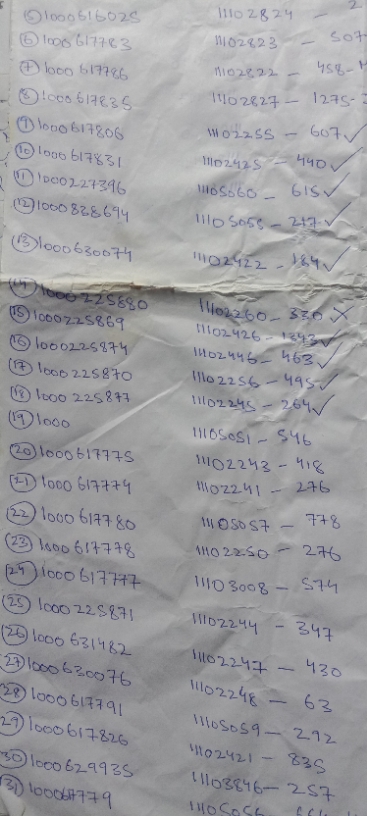 ⑤ 1000616025 11102824 - 2
⑥ 1000617783 11102823 - 507
⑦ 1000617786 11102822 - 458 -
⑧ 1000617835 11102827 - 1275 -
⑨ 1000617806 11102255 - 607 ✓
⑩ 1000617831 11102425 - 440 ✓
⑪ 1000227396 11105060 - 615 ✓
⑫ 1000838694 11105055 - 217 ✓
⑬ 1000630074 11102422 - 184 ✓
⑭ 1000225880 11102260 - 330 ✗
⑮ 1000225869 11102426 - 1343 ✓
⑯ 1000225874 11102446 - 463 ✓
⑰ 1000225870 11102256 - 495 ✓
⑱ 1000225877 11102245 - 264 ✓
⑲ 1000 11105051 - 546
⑳ 1000617775 11102243 - 418
㉑ 1000617774 11102241 - 276
㉒ 1000617780 11105057 - 778
㉓ 1000617778 11102250 - 276
㉔ 1000617777 11103008 - 574
㉕ 1000225871 11102244 - 347
㉖ 1000631482 11102247 - 430
㉗ 1000630076 11102248 - 63
㉘ 1000617791 11105059 - 292
㉙ 1000617826 11102421 - 835
㉚ 1000629935 11103846 - 257
㉛ 100067779 11105056